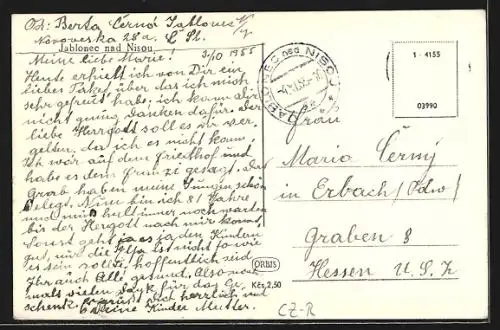 Od: Berta Černá Jablonec n/N
Novoveská 28a. Č. Sl.
Jablonec nad Nisou.
3/10 1955
Meine liebe Marie!
Heute erhielt ich von Dir ein
liebes Paket über das ich mich
sehr gefreut habe; ich kann dir
nicht genug Danken dafür. Der
liebe Herrgott soll es dir ver-
gelten, da ich es nicht kann.
Ich war auf dem Friedhof und
habe es dem gesagt. Das
Grab haben meine Jungen schön
belegt. Nun bin ich 81 Jahre
und muß halt immer noch warten
bis der Hergott nach mir kommt.
Sonst geht es ja den Kindern
gut, nur die ist nicht so wie
es sein sollte, hoffentlich seid
Ihr auch Alle gesund. Also noch-
mals vielen Dank für das Ge-
schenk. Es grüßt dich herzlich und
deine Kinder Mutter.
JABLONEC nad NISOU
1 - 4155
03990
Frau
Maria Černý
in Erbach /Odw/
Graben 8
Hessen U.S.Z
ORBIS
Kčs 2,50
CZ-R